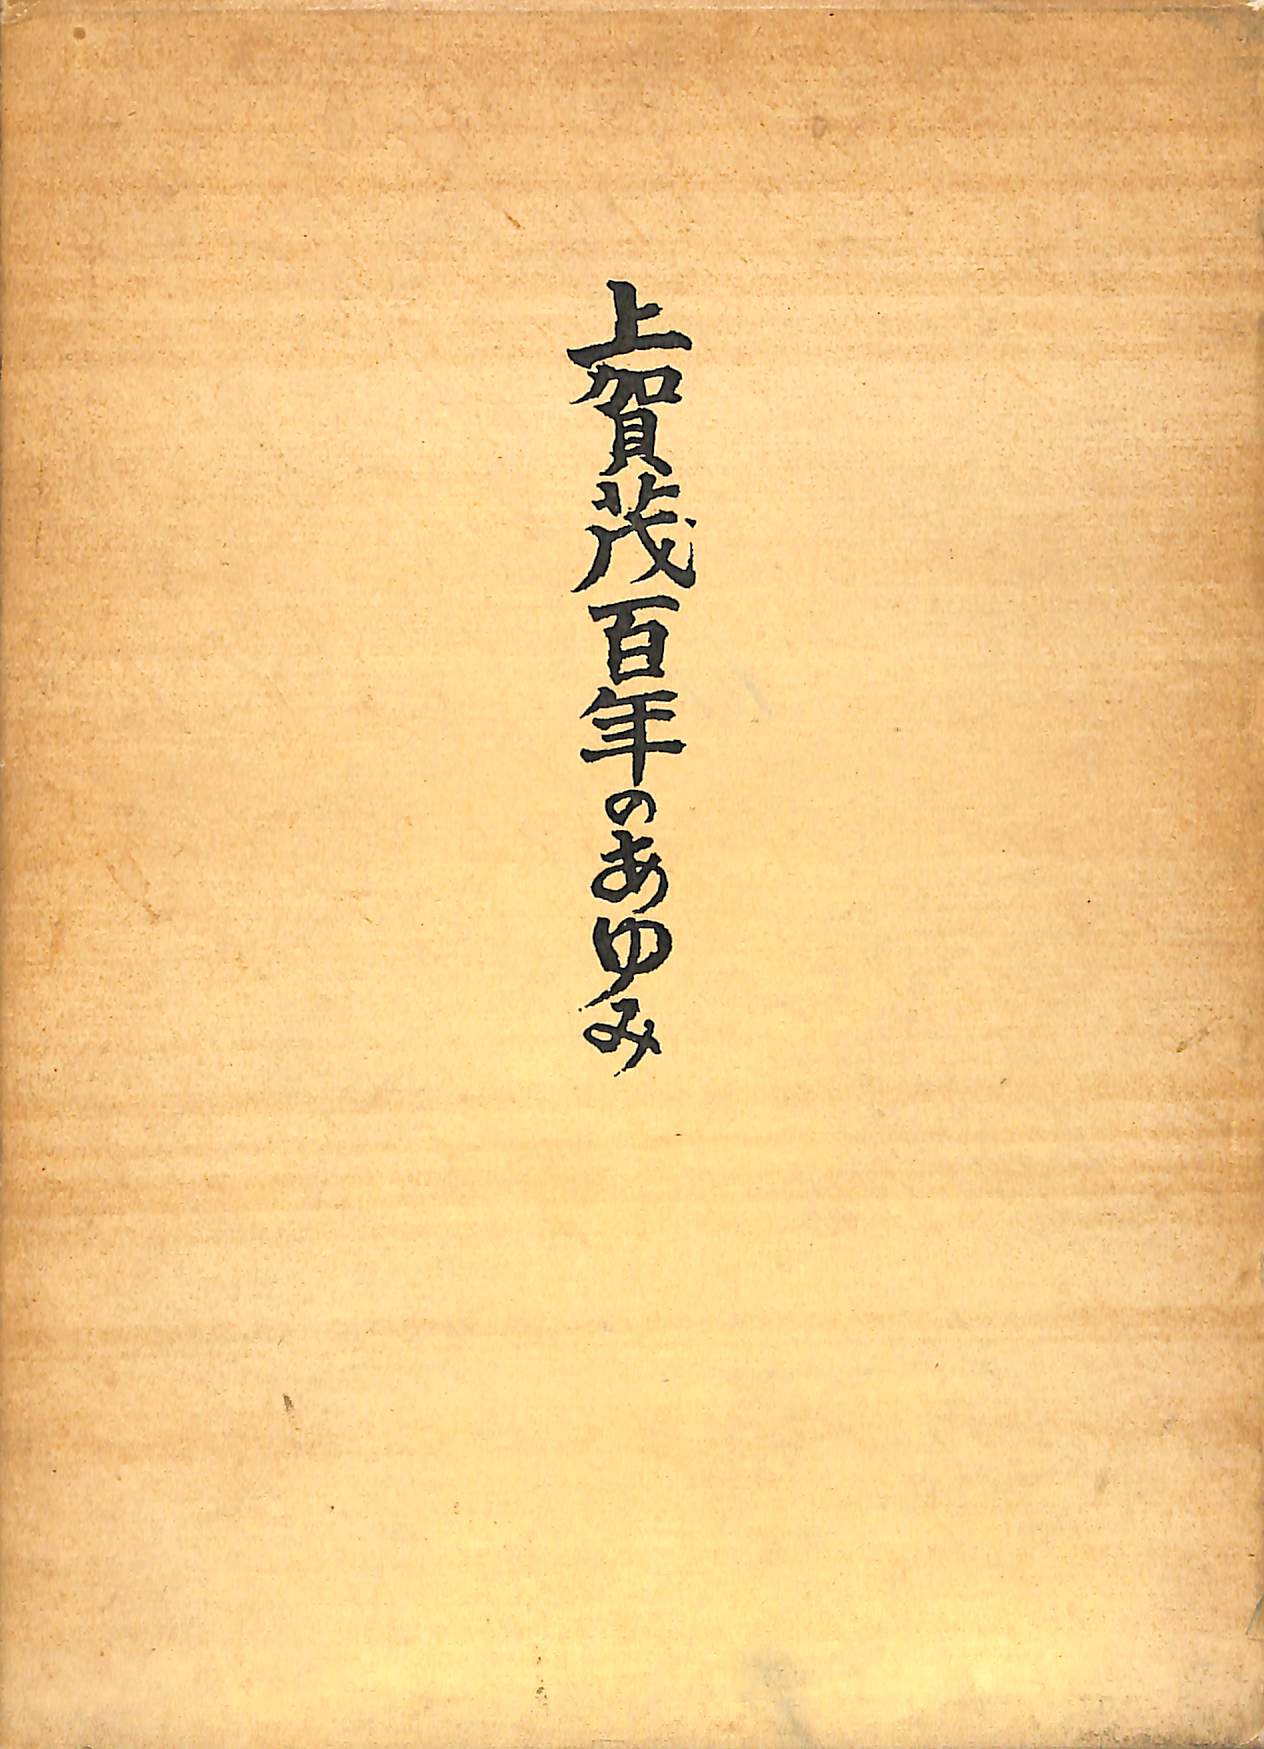 上賀茂百年のあゆみ